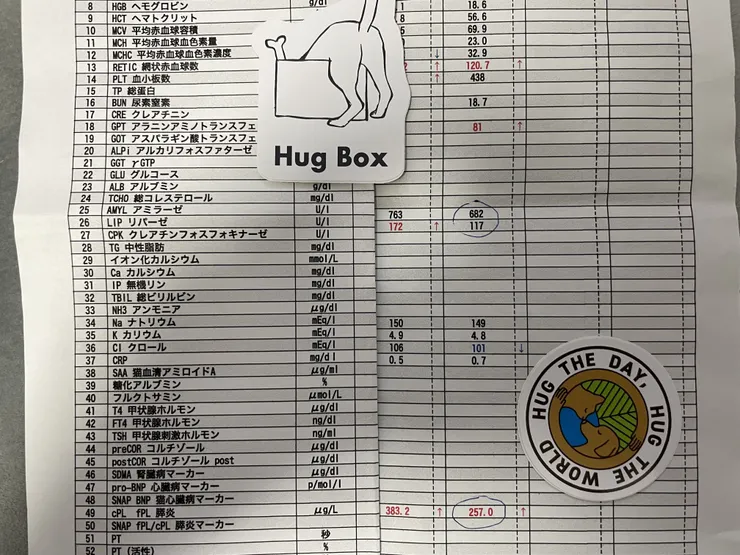 8 HGB ヘモグロビン g/dl 18.6
9 HCT ヘマトクリット 8 56.6
10 MCV 平均赤血球容積 69.9
11 MCH 平均赤血球血色素量 23.0
12 MCHC 平均赤血球血色素濃度 ↓ 32.9
13 RETIC 網状赤血球数 ↑ 120.7 ↑
14 PLT 血小板数 ↑ 438
15 TP 総蛋白
16 BUN 尿素窒素 18.7
17 CRE クレアチニン
18 GPT アラニンアミノトランスフェ 81 ↑
19 GOT アスパラギン酸トランスフェ
20 ALPi アルカリフォスファターゼ
21 GGT γGTP
22 GLU グルコース
23 ALB アルブミン g/dl
24 TCHO 総コレステロール mg/dl
25 AMYL アミラーゼ U/l 763 682
26 LIP リパーゼ U/l 172 ↑ 117
27 CPK クレアチンフォスフォキナーゼ U/l
28 TG 中性脂肪 mg/dl
29 イオン化カルシウム mmol/L
30 Ca カルシウム mg/dl
31 IP 無機リン mg/dl
32 TBIL 総ビリルビン mg/dl
33 NH3 アンモニア μg/dl
34 Na ナトリウム mEq/l 150 149
35 K カリウム mEq/l 4.9 4.8
36 Cl クロール mEq/l 106 101 ↓
37 CRP mg/dl 0.5 0.7
38 SAA 猫血清アミロイドA μg/ml
39 糖化アルブミン %
40 フルクトサミン μmol/L
41 T4 甲状腺ホルモン μg/dl
42 FT4 甲状腺ホルモン ng/dl
43 TSH 甲状腺刺激ホルモン ng/ml
44 preCOR コルチゾール μg/dl
45 postCOR コルチゾール post μg/dl
46 SDMA 腎臓病マーカー μg/dl
47 pro-BNP 心臓病マーカー p/mol/l
48 SNAP BNP 猫心臓病マーカー
49 cPL fPL 膵炎 μg/L 383.2 ↑ 257.0 ↑
50 SNAP fPL/cPL 膵炎マーカー
51 PT 秒
52 PT(活性) %
Hug Box
HUG THE DAY, HUG THE WORLD